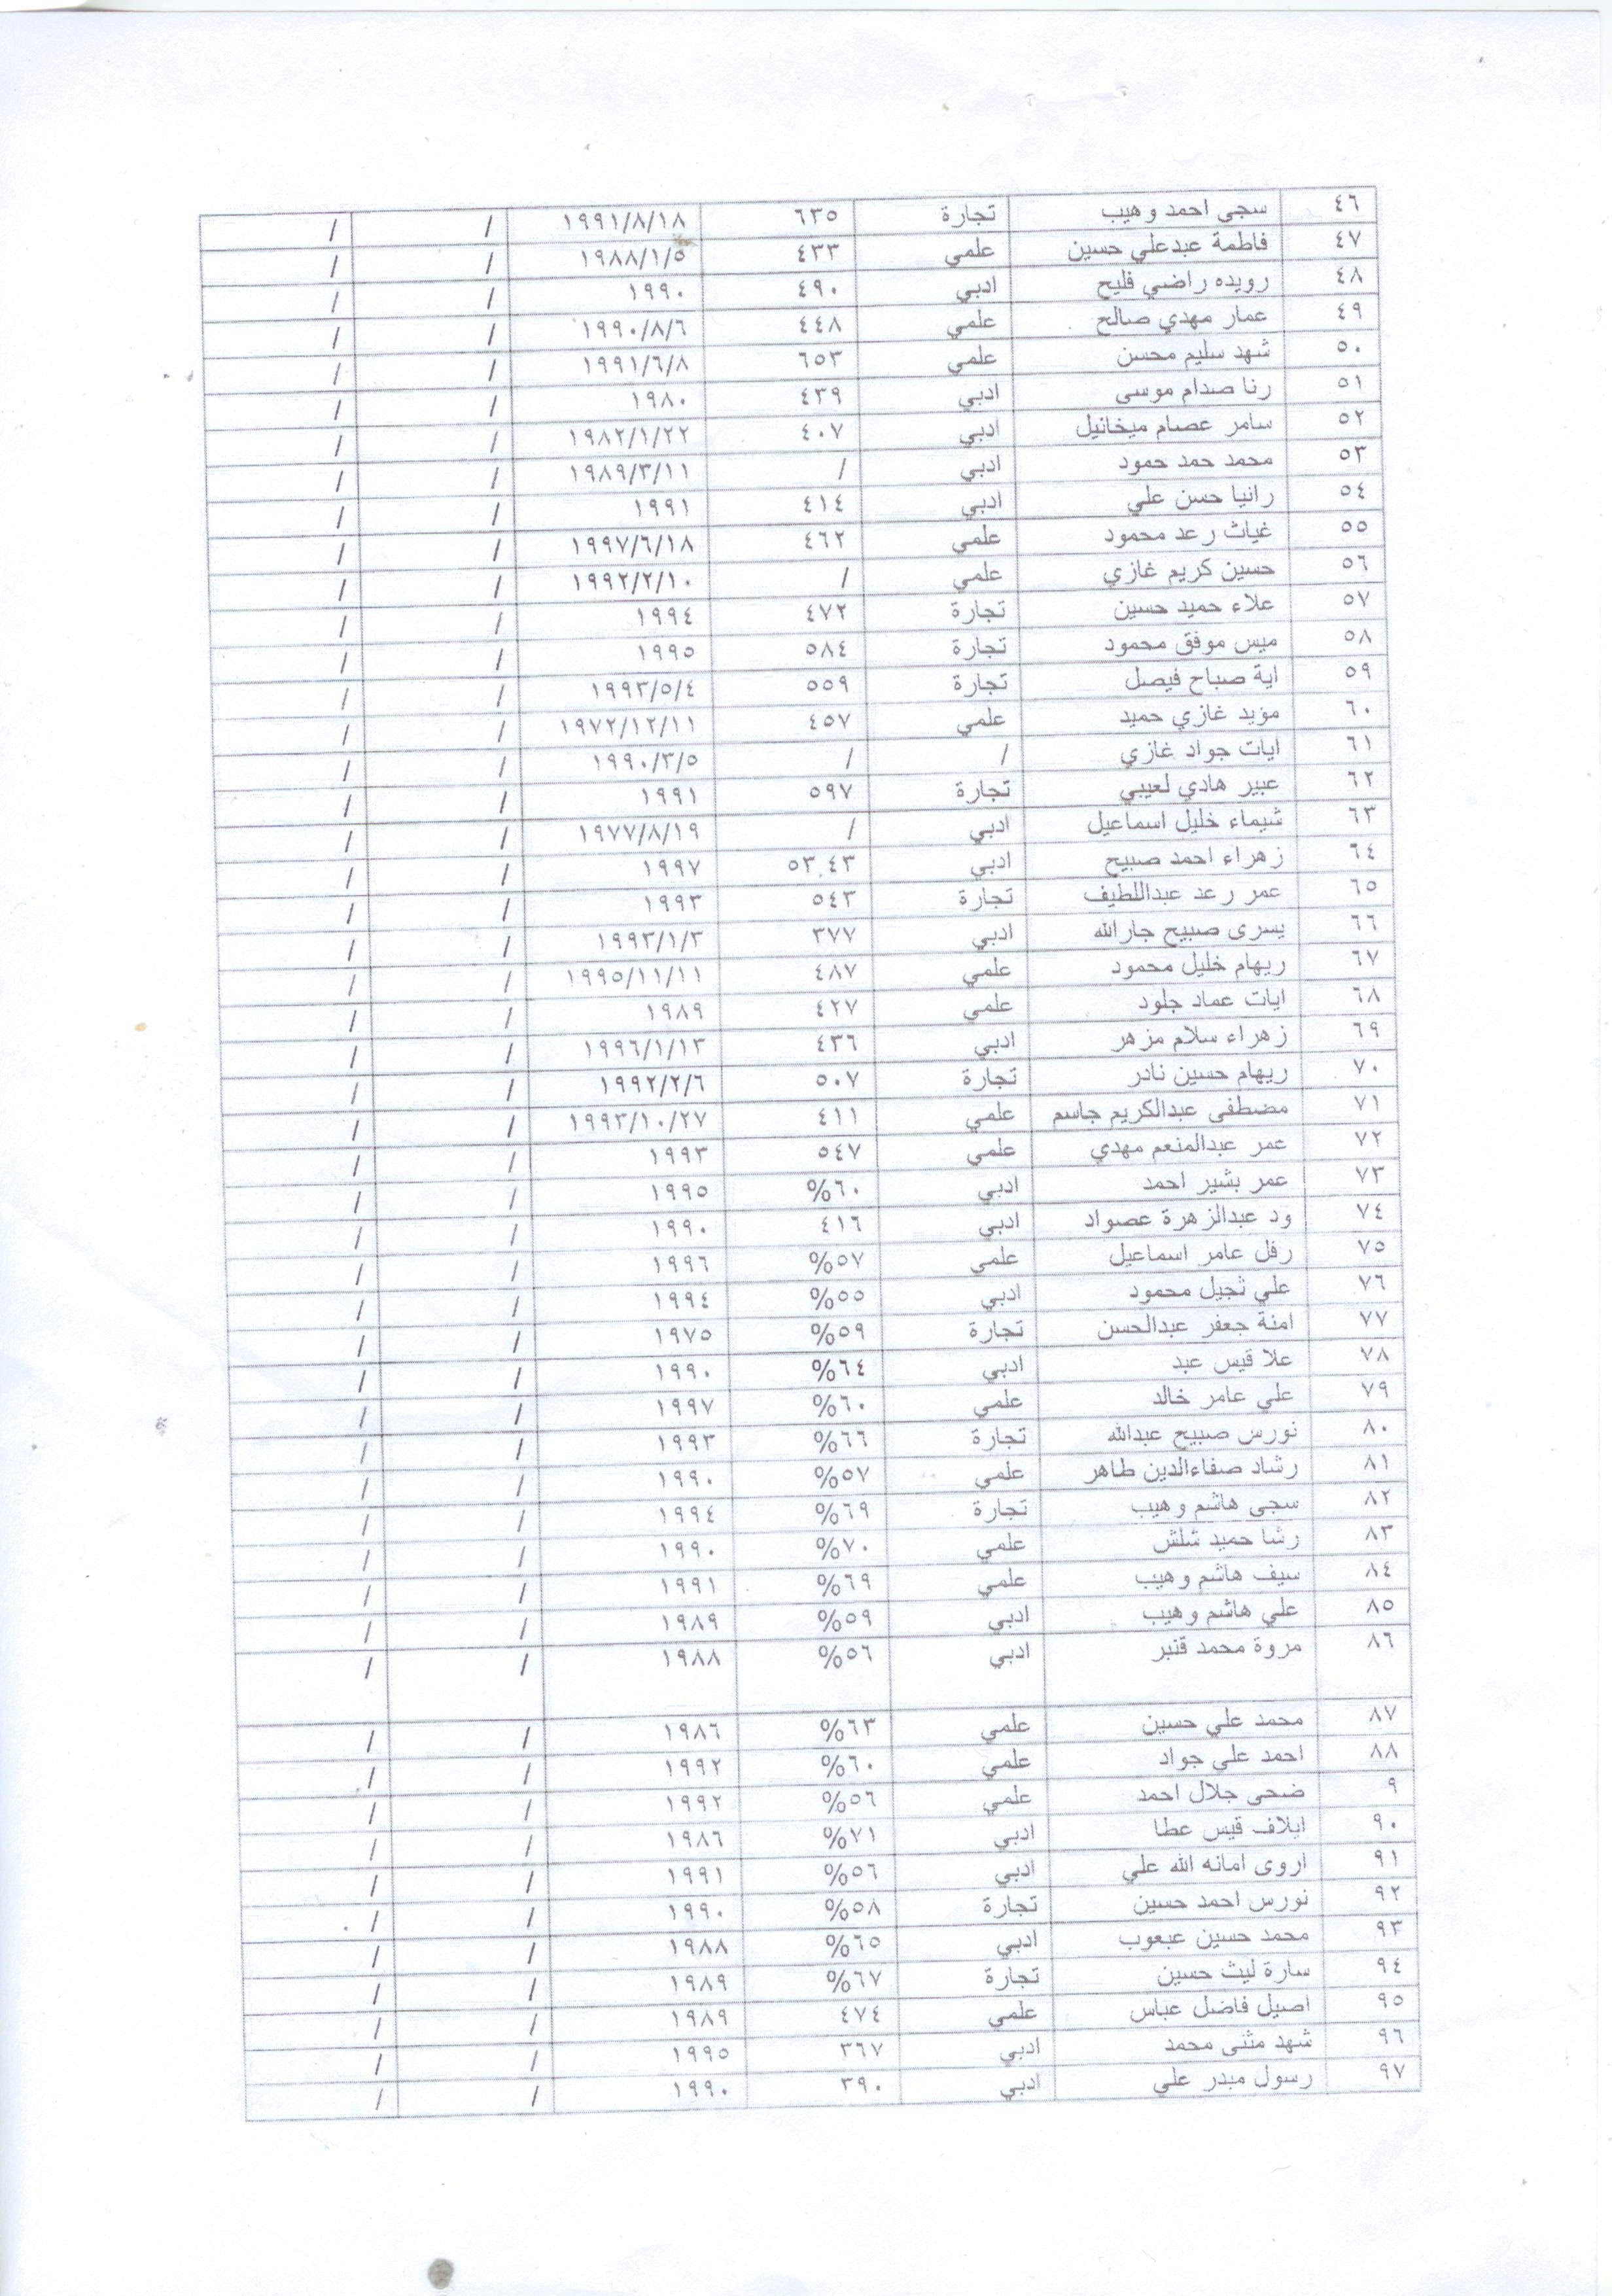 ٤٦ سجى احمد وهيب تجارة ٦٣٥ ١٩٩١/٨/١٨ / /
٤٧ فاطمة عبدعلي حسين علمي ٤٣٣ ١٩٨٨/١/٥ / /
٤٨ رويده راضي فليح ادبي ٤٩٠ ١٩٩٠ / /
٤٩ عمار مهدي صالح علمي ٤٤٨ ١٩٩٠/٨/٦ / /
٥٠ شهد سليم محسن علمي ٦٥٣ ١٩٩١/٦/٨ / /
٥١ رنا صدام موسى ادبي ٤٣٩ ١٩٨٠ / /
٥٢ سامر عصام ميخائيل ادبي ٤٠٧ ١٩٨٢/١/٢٢ / /
٥٣ محمد حمد حمود ادبي / ١٩٨٩/٣/١١ / /
٥٤ رانيا حسن علي ادبي ٤١٤ ١٩٩١ / /
٥٥ غياث رعد محمود علمي ٤٦٢ ١٩٩٧/٦/١٨ / /
٥٦ حسين كريم غازي علمي / ١٩٩٢/٢/١٠ / /
٥٧ علاء حميد حسين تجارة ٤٧٢ ١٩٩٤ / /
٥٨ ميس موفق محمود تجارة ٥٨٤ ١٩٩٥ / /
٥٩ اية صباح فيصل تجارة ٥٥٩ ١٩٩٣/٥/٤ / /
٦٠ مؤيد غازي حميد علمي ٤٥٧ ١٩٧٢/١٢/١١ / /
٦١ ايات جواد غازي / / ١٩٩٠/٣/٥ / /
٦٢ عبير هادي لعيبي تجارة ٥٩٧ ١٩٩١ / /
٦٣ شيماء خليل اسماعيل ادبي / ١٩٧٧/٨/١٩ / /
٦٤ زهراء احمد صبيح ادبي ٥٣.٤٣ ١٩٩٧ / /
٦٥ عمر رعد عبداللطيف تجارة ٥٤٣ ١٩٩٣ / /
٦٦ يسرى صبيح جارالله ادبي ٣٧٧ ١٩٩٣/١/٣ / /
٦٧ ريهام خليل محمود علمي ٤٨٧ ١٩٩٥/١١/١١ / /
٦٨ ايات عماد جلود علمي ٤٢٧ ١٩٨٩ / /
٦٩ زهراء سلام مزهر ادبي ٤٣٦ ١٩٩٦/١/١٣ / /
٧٠ ريهام حسين نادر تجارة ٥٠٧ ١٩٩٢/٢/٦ / /
٧١ مضطفى عبدالكريم جاسم علمي ٤١١ ١٩٩٣/١٠/٢٧ / /
٧٢ عمر عبدالمنعم مهدي علمي ٥٤٧ ١٩٩٣ / /
٧٣ عمر بشير احمد ادبي %٦٠ ١٩٩٥ / /
٧٤ ود عبدالزهرة عصواد ادبي ٤١٦ ١٩٩٠ / /
٧٥ رفل عامر اسماعيل علمي %٥٧ ١٩٩٦ / /
٧٦ علي ثجيل محمود ادبي %٥٥ ١٩٩٤ / /
٧٧ امنة جعفر عبدالحسن تجارة %٥٩ ١٩٧٥ / /
٧٨ علا قيس عبد ادبي %٦٤ ١٩٩٠ / /
٧٩ علي عامر خالد علمي %٦٠ ١٩٩٧ / /
٨٠ نورس صبيح عبدالله تجارة %٦٦ ١٩٩٣ / /
٨١ رشاد صفاءالدين طاهر علمي %٥٧ ١٩٩٠ / /
٨٢ سجى هاشم وهيب تجارة %٦٩ ١٩٩٤ / /
٨٣ رشا حميد شلش علمي %٧٠ ١٩٩٠ / /
٨٤ سيف هاشم وهيب علمي %٦٩ ١٩٩١ / /
٨٥ علي هاشم وهيب ادبي %٥٩ ١٩٨٩ / /
٨٦ مروة محمد قنبر ادبي %٥٦ ١٩٨٨ / /
٨٧ محمد علي حسين علمي %٦٣ ١٩٨٦ / /
٨٨ احمد علي جواد علمي %٦٠ ١٩٩٢ / /
٩ ضحى جلال احمد علمي %٥٦ ١٩٩٢ / /
٩٠ ايلاف قيس عطا ادبي %٧١ ١٩٨٦ / /
٩١ اروى امانه الله علي ادبي %٥٦ ١٩٩١ / /
٩٢ نورس احمد حسين تجارة %٥٨ ١٩٩٠ / /
٩٣ محمد حسين عبعوب ادبي %٦٥ ١٩٨٨ / /
٩٤ سارة ليث حسين تجارة %٦٧ ١٩٨٩ / /
٩٥ اصيل فاضل عباس علمي ٤٧٤ ١٩٨٩ / /
٩٦ شهد مثنى محمد ادبي ٣٦٧ ١٩٩٥ / /
٩٧ رسول مبدر علي ادبي ٣٩٠ ١٩٩٠ / /